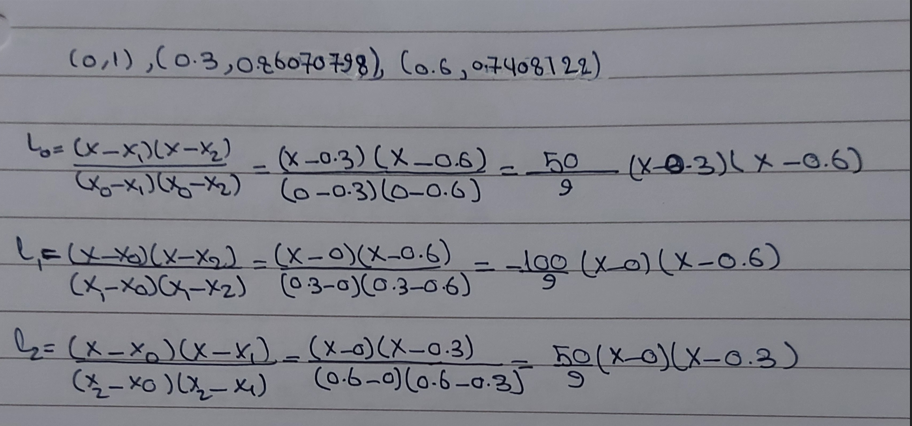 (0,1), (0.3, 0.86070798), (0.6, 0.7408122)
L₀ = (x-x₁)(x-x₂) / (x₀-x₁)(x₀-x₂) = (x-0.3)(x-0.6) / (0-0.3)(0-0.6) = 50/9 (x-0.3)(x-0.6)
L₁ = (x-x₀)(x-x₂) / (x₁-x₀)(x₁-x₂) = (x-0)(x-0.6) / (0.3-0)(0.3-0.6) = -100/9 (x-0)(x-0.6)
L₂ = (x-x₀)(x-x₁) / (x₂-x₀)(x₂-x₁) = (x-0)(x-0.3) / (0.6-0)(0.6-0.3) = 50/9 (x-0)(x-0.3)